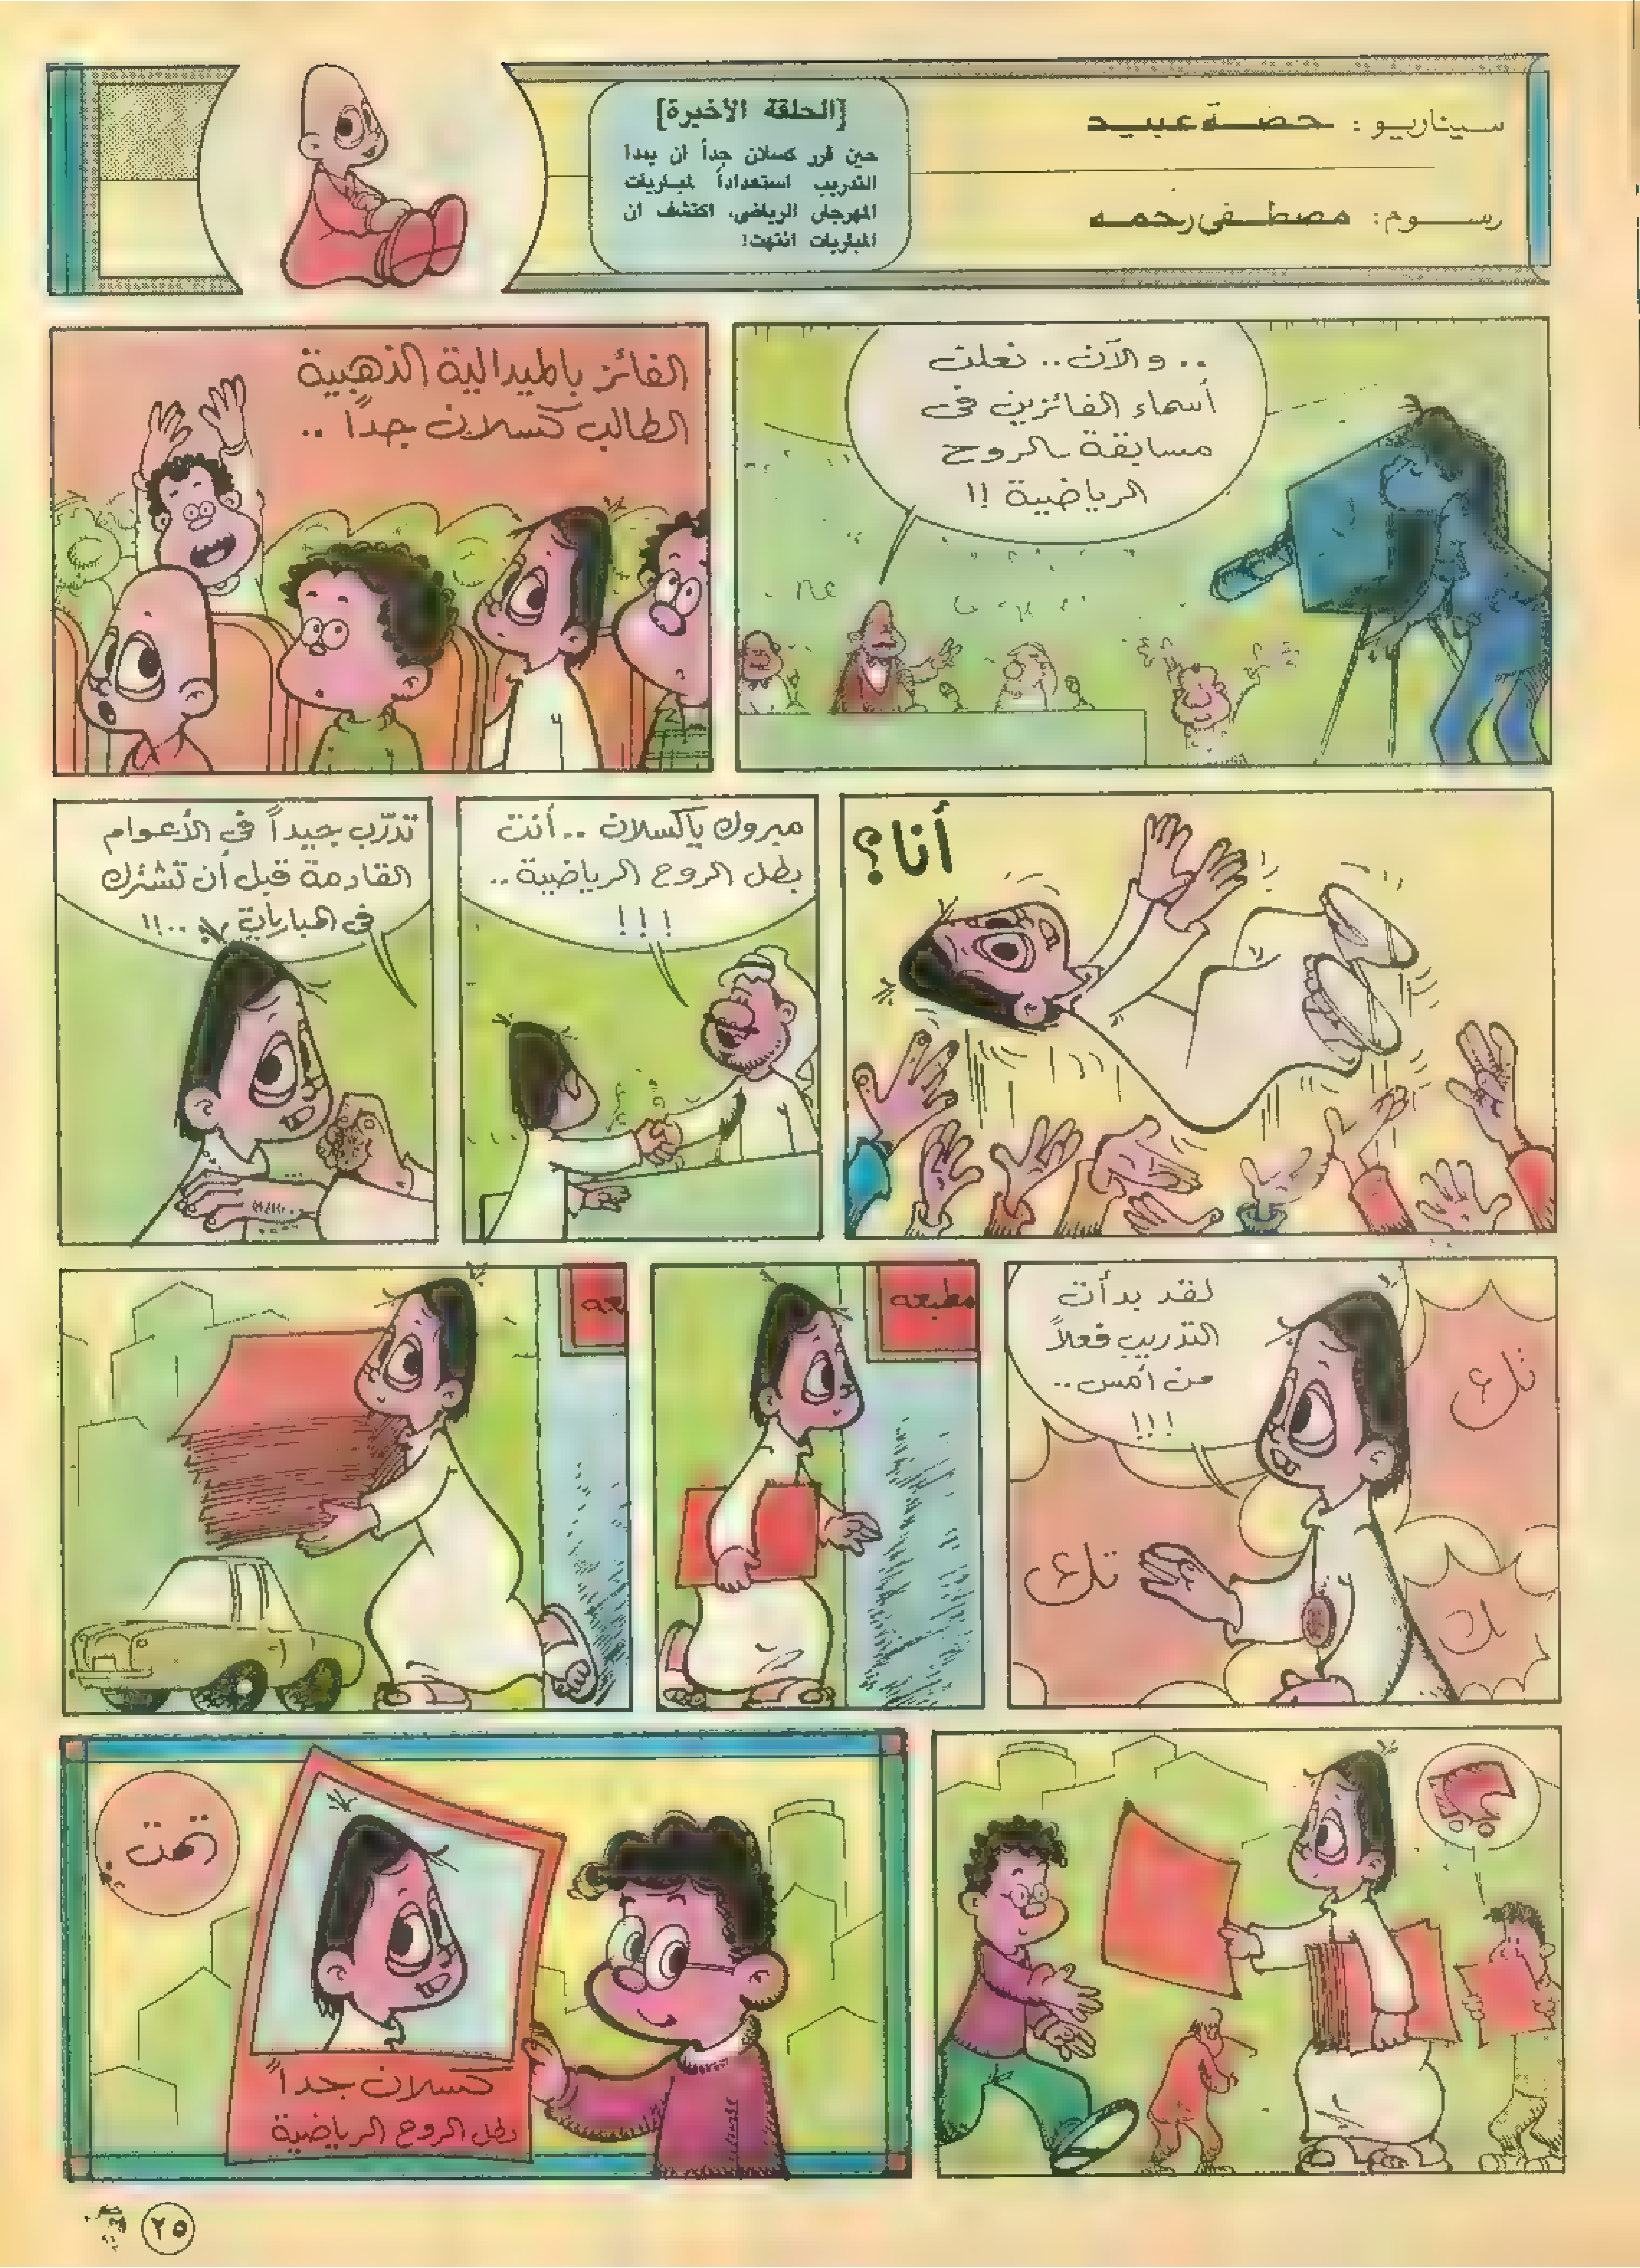 سيناريو: حصة عبيد
رسوم: مصطفى رحمه
[الحلقة الأخيرة]
حين قرر كسلان جداً ان يبدأ
التدريب استعداداً لمباريات
المهرجان الرياضي، اكتشف ان
المباريات انتهت!
.. والآن.. نعلن
أسماء الفائزين فى
مسابقة الروح
الرياضية !!
الفائز بالميدالية الذهبية
الطالب كسلان جداً ..
أنا؟
مبروك ياكسلان .. أنت
بطل الروح الرياضية ..
!!!
تدرّب جيداً فى الأعوام
القادمة قبل أن تشترك
فى المباريات ..!!
لقد بدأت
التدريب فعلاً
من أمس..
!!!
تك
تك
تك
مطبعه
بعه
كسلان جداً
بطل الروح الرياضية
تمت
٢٥